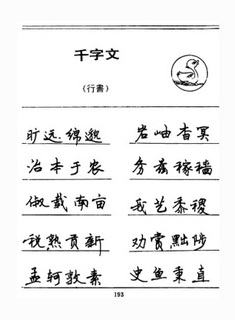 千字文
(行書)
旷远绵邈 岩岫杳冥
治本于农 务兹稼穑
俶载南亩 我艺黍稷
税熟贡新 劝赏黜陟
孟轲敦素 史鱼秉直
193